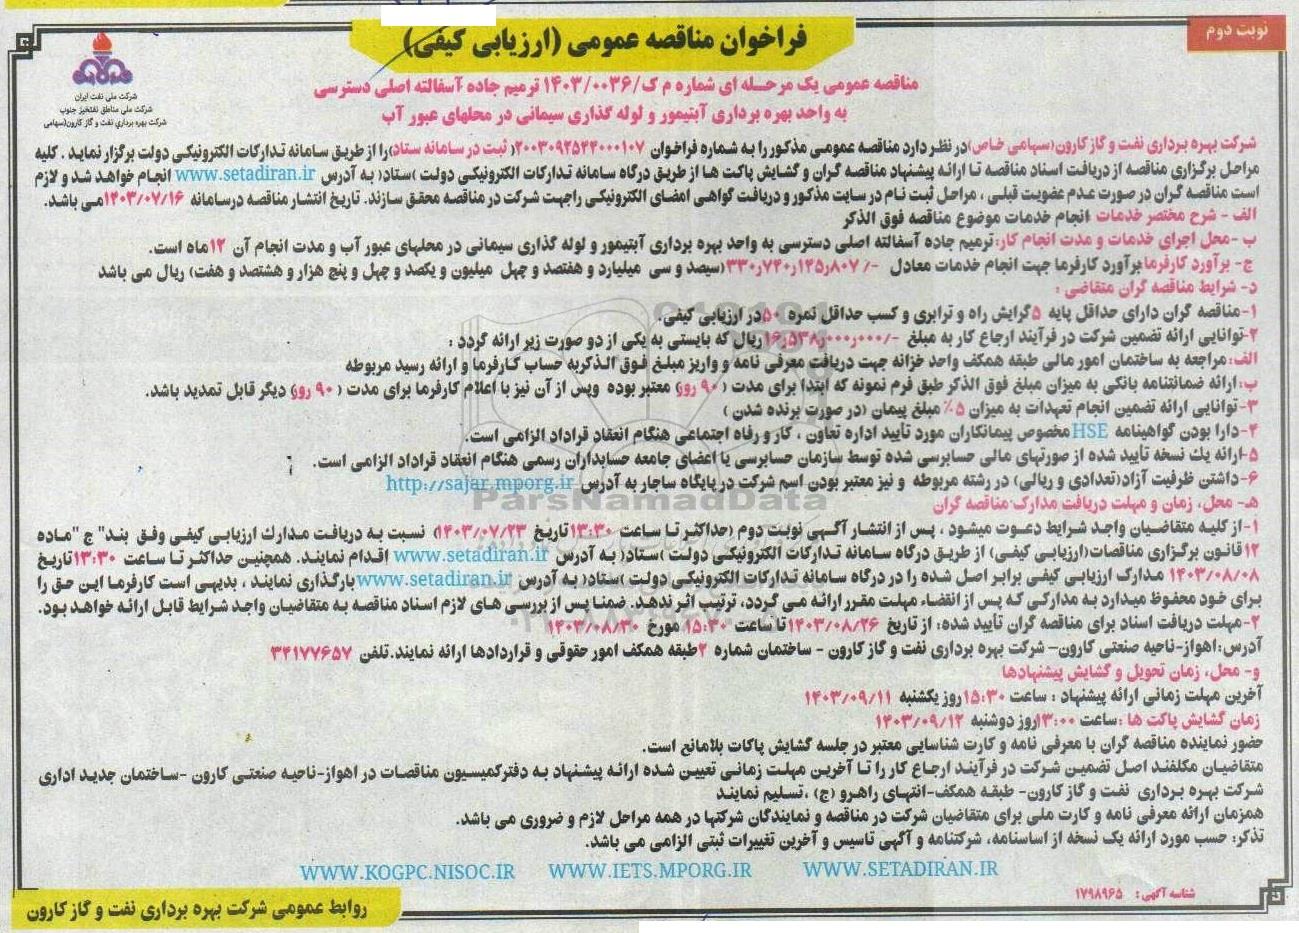 نوبت دوم
فراخوان مناقصه عمومی (ارزیابی کیفی)
شرکت ملی نفت ایران
شرکت ملی مناطق نفتخیز جنوب
شرکت بهره برداری نفت و گاز کارون(سهامی
مناقصه عمومی یک مرحله ای شماره م ک/۱۴۰۳/۰۰۳۶ ترمیم جاده آسفالته اصلی دسترسی
به واحد بهره برداری آبتیمور و لوله گذاری سیمانی در محلهای عبور آب
شرکت بهره برداری نفت و گاز کارون(سهامی خاص)در نظر دارد مناقصه عمومی مذکور را به شماره فراخوان ۲۰۰۳۰۹۲۵۴۴۰۰۰۱۰۷( ثبت در سامانه ستاد)را از طریق سامانه تدارکات الکترونیکی دولت برگزار نماید . کلیه
مراحل برگزاری مناقصه از دریافت اسناد مناقصه تا ارائه پیشنهاد مناقصه گران و گشایش پاکت ها از طریق درگاه سامانه تدارکات الکترونیکی دولت )ستاد( به آدرس www.setadiran.ir انجام خواهد شد و لازم
است مناقصه گران در صورت عدم عضویت قبلی ، مراحل ثبت نام در سایت مذکور و دریافت گواهی امضای الکترونیکی راجهت شرکت در مناقصه محقق سازند. تاریخ انتشار مناقصه درسامانه ۱۴۰۳/۰۷/۱۶می باشد.
الف - شرح مختصر خدمات :انجام خدمات موضوع مناقصه فوق الذکر
ب -محل اجرای خدمات و مدت انجام کار:ترمیم جاده آسفالته اصلی دسترسی به واحد بهره برداری آبتیمور و لوله گذاری سیمانی در محلهای عبور آب و مدت انجام آن ۱۲ماه است.
ج- برآورد کارفرما:برآورد کارفرما جهت انجام خدمات معادل -/۳۳۰٫۷۴۰٫۱۴۵٫۸۰۷(سیصد و سی میلیارد و هفتصد و چهل میلیون و یکصد و چهل و پنج هزار و هشتصد و هفت) ریال می باشد
د- شرایط مناقصه گران متقاضی :
۱-مناقصه گران دارای حداقل پایه ۵گرایش راه و ترابری و کسب حداقل نمره ۵۰در ارزیابی کیفی.
۲-توانایی ارائه تضمین شرکت در فرآیند ارجاع کار به مبلغ -/۱۶٫۵۳۸٫۰۰۰٫۰۰۰ریال که بایستی به یکی از دو صورت زیر ارائه گردد :
الف: مراجعه به ساختمان امور مالی طبقه همکف واحد خزانه جهت دریافت معرفی نامه و واریز مبلغ فوق الذکربه حساب کارفرما و ارائه رسید مربوطه
ب: ارائه ضمانتنامه بانکی به میزان مبلغ فوق الذکر طبق فرم نمونه که ابتدا برای مدت ( ۹۰ روز) معتبر بوده وپس از آن نیز با اعلام کارفرما برای مدت ( ۹۰ روز) دیگر قابل تمدید باشد.
۳- توانایی ارائه تضمین انجام تعهدات به میزان ۵٪ مبلغ پیمان (در صورت برنده شدن )
۴-دارا بودن گواهینامه HSE مخصوص پیمانکاران مورد تأیید اداره تعاون ، کار و رفاه اجتماعی هنگام انعقاد قراداد الزامی است.
۵-ارائه یک نسخه تأیید شده از صورتهای مالی حسابرسی شده توسط سازمان حسابرسی یا اعضای جامعه حسابداران رسمی هنگام انعقاد قراداد الزامی است.
۶-داشتن ظرفیت آزاد(تعدادی و ریالی) در رشته مربوطه و نیز معتبر بودن اسم شرکت در پایگاه ساجار به آدرس http://sajar.mporg.ir
ParsNamadData
هـ- محل، زمان و مهلت دریافت مدارک مناقصه گران
۱-از کلیه متقاضیان واجد شرایط دعوت میشود ، پس از انتشار آگهی نوبت دوم (حداکثر تا ساعت ۱۳:۳۰ تاریخ ۱۴۰۳/۰۷/۲۳) نسبت به دریافت مدارک ارزیابی کیفی وفق بند" ج "ماده
۱۲قانون برگزاری مناقصات(ارزیابی کیفی) از طریق درگاه سامانه تدارکات الکترونیکی دولت )ستاد( به آدرس www.setadiran.ir اقدام نمایند. همچنین حداکثر تا ساعت ۱۳:۳۰تاریخ
۱۴۰۳/۰۸/۰۸ مدارک ارزیابی کیفی برابر اصل شده را در درگاه سامانه تدارکات الکترونیکی دولت )ستاد( به آدرس www.setadiran.ir بارگذاری نمایند ، بدیهی است کارفرما این حق را
برای خود محفوظ میدارد به مدارکی که پس از انقضاء مهلت مقرر ارائه می گردد، ترتیب اثر ندهد. ضمنا پس از بررسی های لازم اسناد مناقصه به متقاضیان واجد شرایط قابل ارائه خواهد بود.
۲-مهلت دریافت اسناد برای مناقصه گران تأیید شده: از تاریخ ۱۴۰۳/۰۸/۲۶ تا ساعت ۱۵:۳۰ مورخ ۱۴۰۳/۰۸/۳۰
آدرس:اهواز-ناحیه صنعتی کارون- شرکت بهره برداری نفت و گاز کارون - ساختمان شماره ۲طبقه همکف امور حقوقی و قراردادها ارائه نمایند.تلفن ۳۴۱۷۷۶۵۷
و- محل، زمان تحویل و گشایش پیشنهادها
آخرین مهلت زمانی ارائه پیشنهاد : ساعت ۱۵:۳۰روز یکشنبه ۱۴۰۳/۰۹/۱۱
زمان گشایش پاکت ها :ساعت ۱۳:۰۰روز دوشنبه ۱۴۰۳/۰۹/۱۲
حضور نماینده مناقصه گران با معرفی نامه و کارت شناسایی معتبر در جلسه گشایش پاکات بلامانع است.
متقاضیان مکلفند اصل تضمین شرکت در فرآیند ارجاع کار را تا آخرین مهلت زمانی تعیین شده ارائه پیشنهاد به دفترکمیسیون مناقصات در اهواز-ناحیه صنعتی کارون -ساختمان جدید اداری
شرکت بهره برداری نفت و گاز کارون- طبقه همکف-انتهای راهرو (ج) ،تسلیم نمایند
همزمان ارائه معرفی نامه و کارت ملی برای متقاضیان شرکت در مناقصه و نمایندگان شرکتها در همه مراحل لازم و ضروری می باشد.
تذکر: حسب مورد ارائه یک نسخه از اساسنامه، شرکتنامه و آگهی تاسیس و آخرین تغییرات ثبتی الزامی می باشد.
WWW.KOGPC.NISOC.IR WWW.IETS.MPORG.IR WWW.SETADIRAN.IR
شناسه آگهی : ۱۷۹۸۹۶۵
روابط عمومی شرکت بهره برداری نفت و گاز کارون